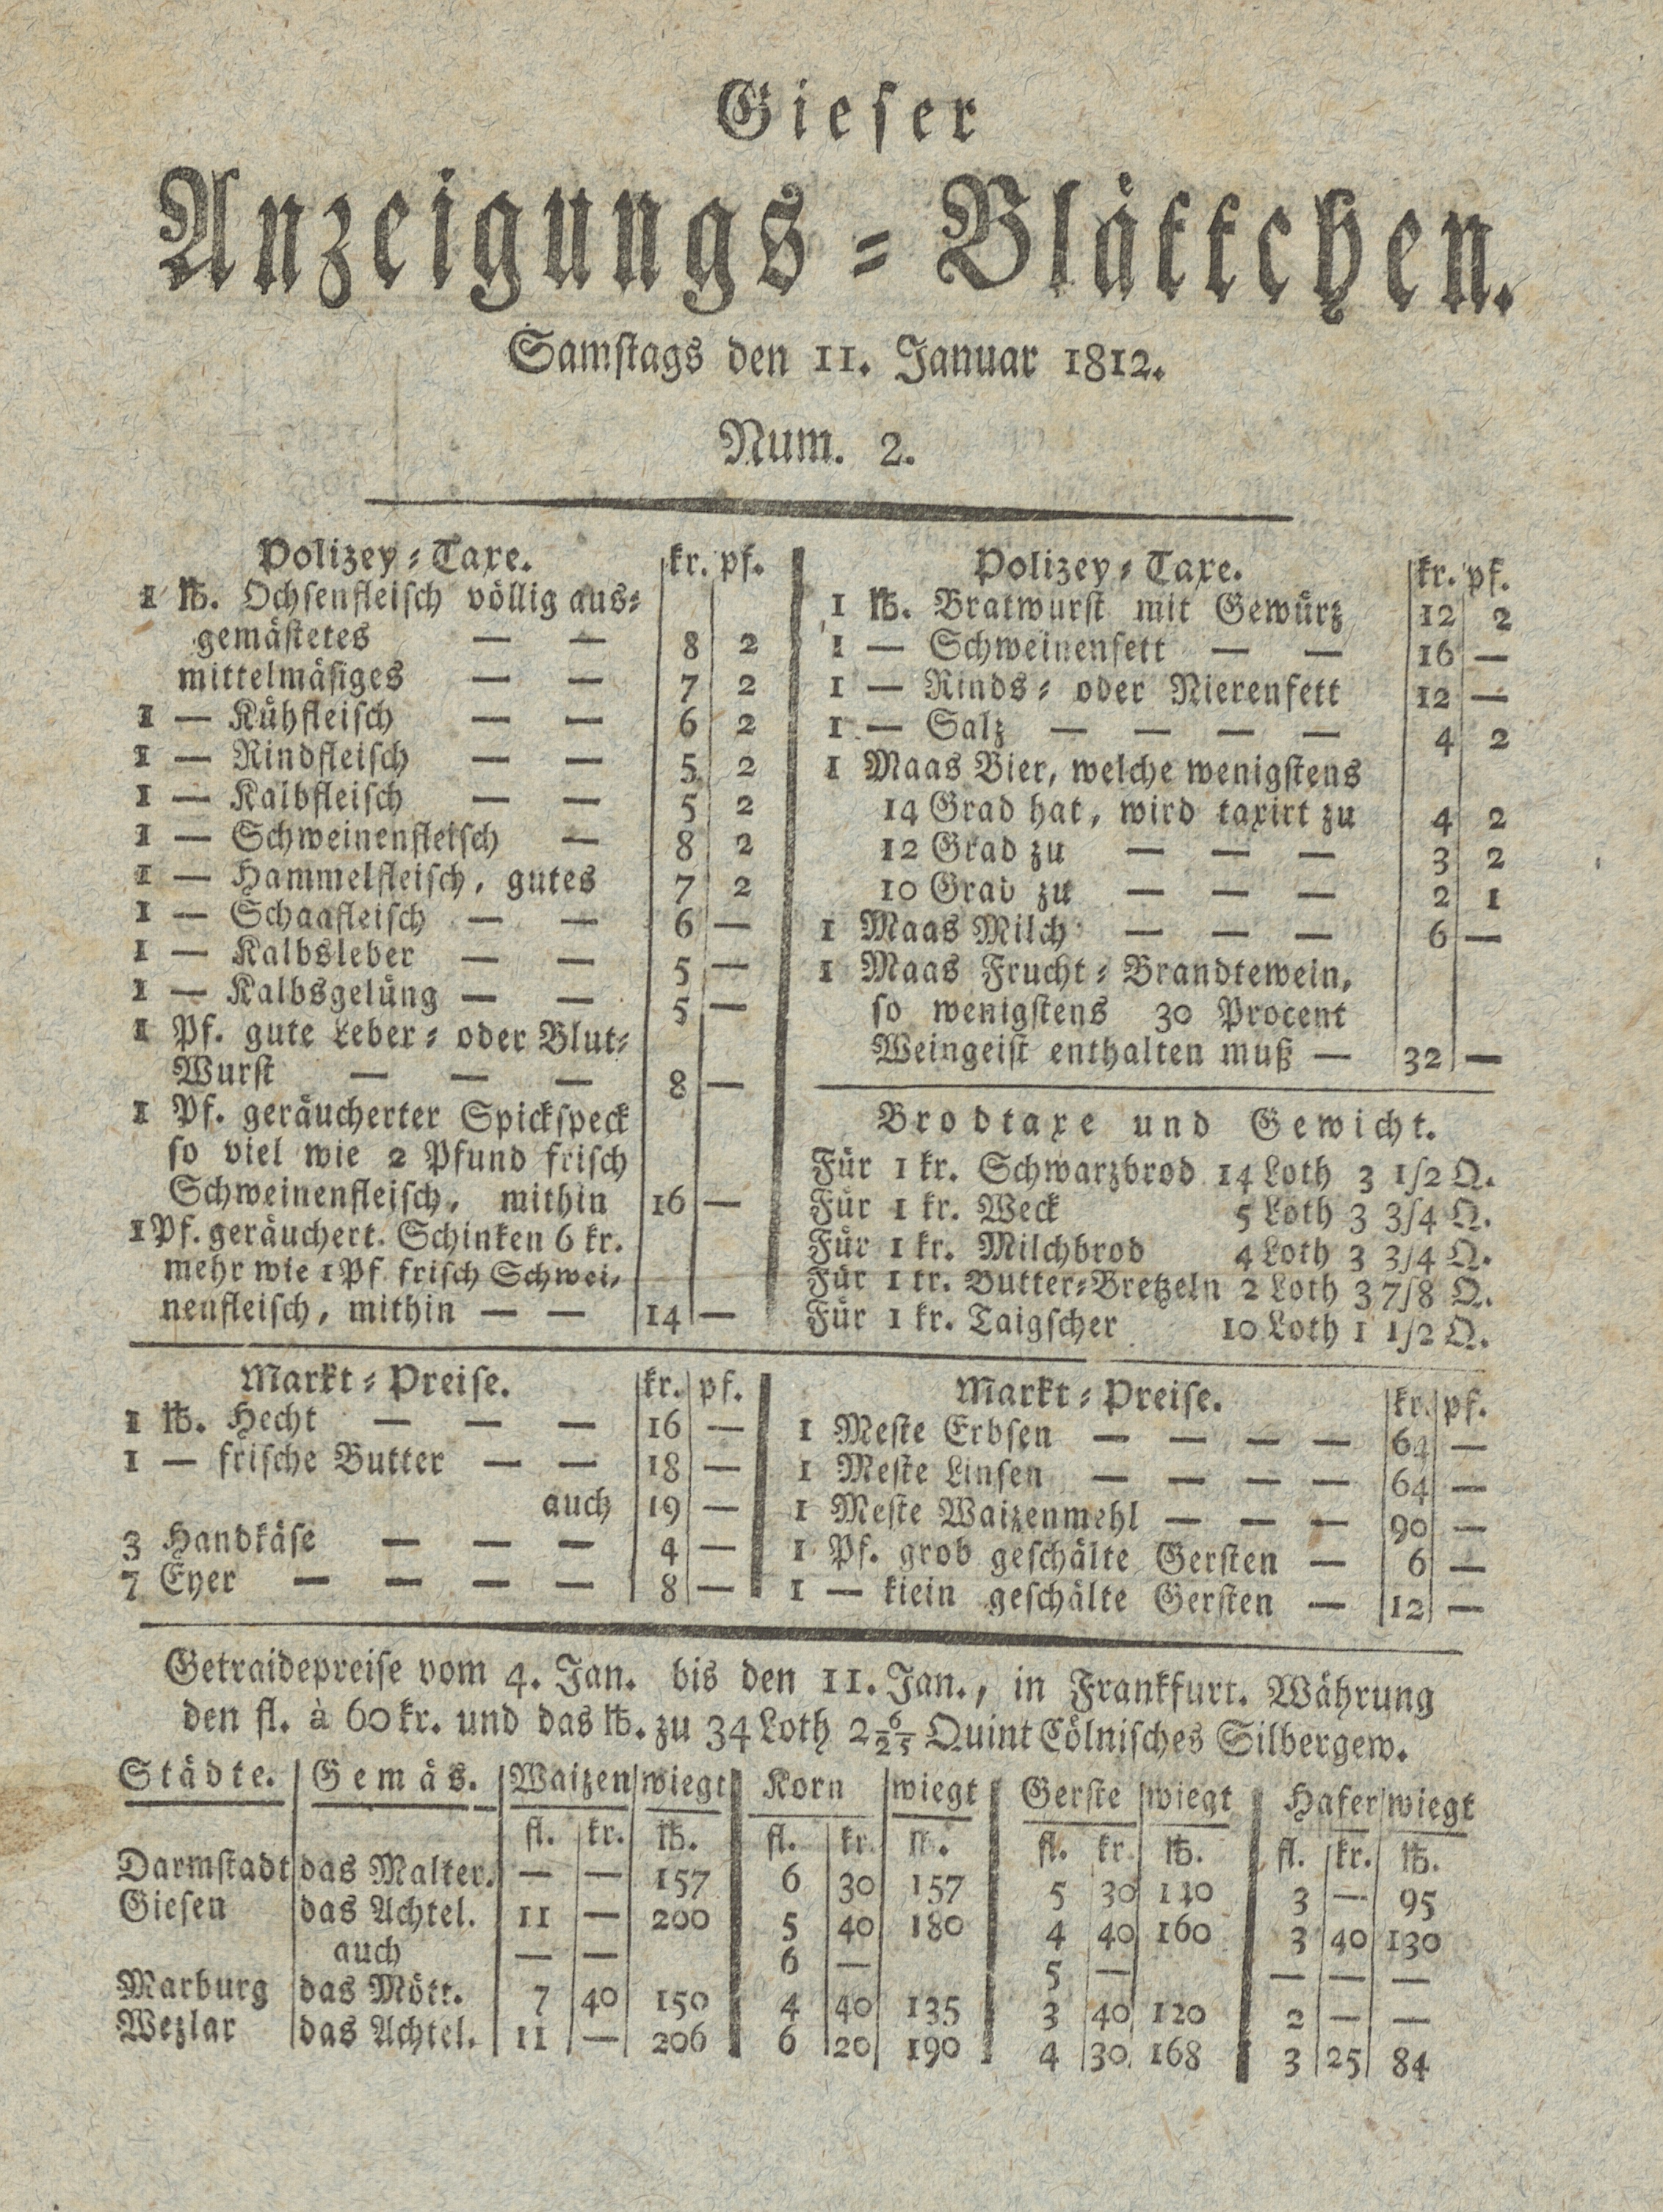 Gieser
Anzeigungs-Blättchen.
Samstags den 11. Januar 1812.
Num. 2.
Polizey-Taxe. kr. pf.
1 ℔. Ochsenfleisch völlig aus-
gemästetes — — 8 2
mittelmäsiges — — 7 2
1 — Kühfleisch — — 6 2
1 — Rindfleisch — — 5 2
1 — Kalbfleisch — — 5 2
1 — Schweinenfleisch — 8 2
1 — Hammelfleisch, gutes 7 2
1 — Schaafleisch — — 6 —
1 — Kalbsleber — — 5 —
1 — Kalbsgelüng — — 5 —
1 Pf. gute Leber- oder Blut-
Wurst — — — 8 —
1 Pf. geräucherter Spickspeck
so viel wie 2 Pfund frisch
Schweinenfleisch, mithin 16 —
1 Pf. geräuchert. Schinken 6 kr.
mehr wie 1 Pf frisch Schwei-
nenfleisch, mithin — — 14 —
Polizey-Taxe. kr. pf.
1 ℔. Bratwurst mit Gewürz 12 2
1 — Schweinenfett — — 16 —
1 — Rinds- oder Nierenfett 12 —
1 — Salz — — — — 4 2
1 Maas Bier, welche wenigstens
14 Grad hat, wird taxirt zu 4 2
12 Grad zu — — — 3 2
10 Grad zu — — — 2 1
1 Maas Milch — — — 6 —
1 Maas Frucht-Brandtewein,
so wenigstens 30 Procent
Weingeist enthalten muß — 32 —
Brodtaxe und Gewicht.
Für 1 kr. Schwarzbrod 14 Loth 3 1/2 Q.
Für 1 kr. Weck 5 Loth 3 3/4 Q.
Für 1 kr. Milchbrod 4 Loth 3 3/4 Q.
Für 1 kr. Butter-Bretzeln 2 Loth 3 7/8 Q.
Für 1 kr. Taigscher 10 Loth 1 1/2 Q.
Markt-Preise. kr. pf.
1 ℔. Hecht — — — 16 —
1 — frische Butter — — 18 —
auch 19 —
3 Handkäse — — — 4 —
7 Eyer — — — — 8 —
Markt-Preise. kr. pf.
1 Meste Erbsen — — — — 64 —
1 Meste Linsen — — — — 64 —
1 Meste Waizenmehl — — — 90 —
1 Pf. grob geschälte Gersten — 6 —
1 — kiein geschälte Gersten — 12 —
Getraidepreise vom 4. Jan. bis den 11. Jan., in Frankfurt. Währung
den fl. à 60 kr. und das ℔. zu 34 Loth 2 6/25 Quint Cölnisches Silbergew.
Städte. Gemäs. Waizen wiegt Korn wiegt Gerste wiegt Hafer wiegt
fl. kr. ℔. fl. kr. ℔. fl. kr. ℔. fl. kr. ℔.
Darmstadt das Malter. — — 157 6 30 157 5 30 140 3 — 95
Giesen das Achtel. 11 — 200 5 40 180 4 40 160 3 40 130
auch — — 6 — 5 — — — —
Marburg das Mött. 7 40 150 4 40 135 3 40 120 2 — —
Wezlar das Achtel. 11 — 206 6 20 190 4 30 168 3 25 84